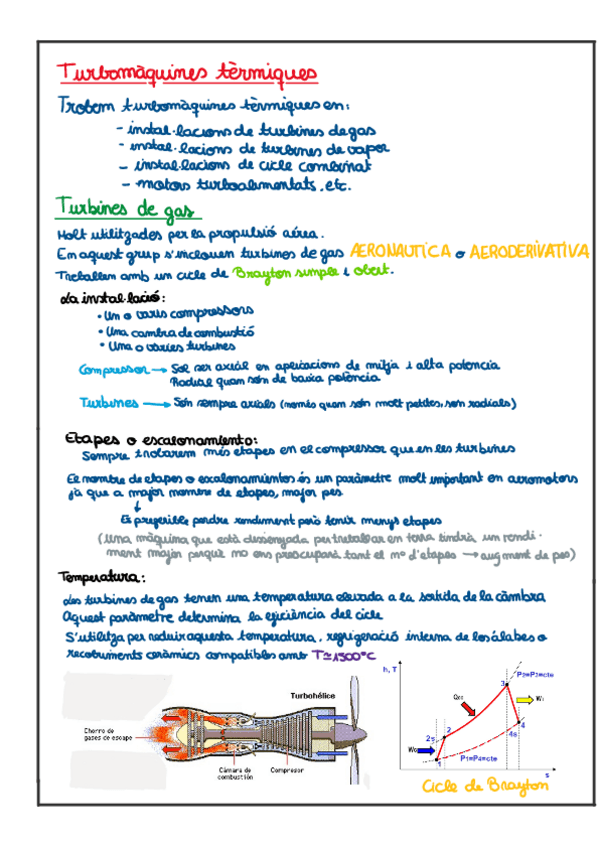 Turbomàquines tèrmiques
Trobem turbomàquines tèrmiques en:
- instal·lacions de turbines de gas
- instal·lacions de turbines de vapor
- instal·lacions de cicle combinat
- motors turboalimentats, etc.
Turbines de gas
Molt utilitzades per la propulsió aérea.
En aquest grup s'inclouen turbines de gas AERONAUTICA o AERODERIVATIVA
Treballen amb un cicle de Brayton simple i obert.
La instal·lació:
• Un o varis compressors
• Una cambra de combustió
• Una o varies turbines
Compressor → Sol ser axial en aplicacions de mitja i alta potencia
Radial quan són de baixa potència
Turbines → Són sempre axials (només quan són molt petites, son radials)
Etapes o escalonamiento:
Sempre trobarem més etapes en el compressor que en les turbines
El nombre de etapes o escalonamientos és un paràmetre molt important en aeromotors
ja que a major nombre de etapes, major pes
↓
Es preferible perdre rendiment però tenir menys etapes
(Una màquina que està dissenyada per treballar en terra tindrà un rendi-
ment major perquè no ens preocuparà tant el nº d'etapes → augment de pes)
Temperatura:
Les turbines de gas tenen una temperatura elevada a la sortida de la càmbra
Aquest paràmetre determina la eficiència del cicle
S'utilitza per reduir aquesta temperatura, refrigeració interna de los álabes o
recobriments ceràmics compatibles amb T≃1500°C
Turbohélice
Chorro de
gases de escape
Cámara de
combustión
Compresor
h, T
P2=P3=cte
3
Wt
2s
2
4s
4
1
P1=P4=cte
s
Cicle de Brayton